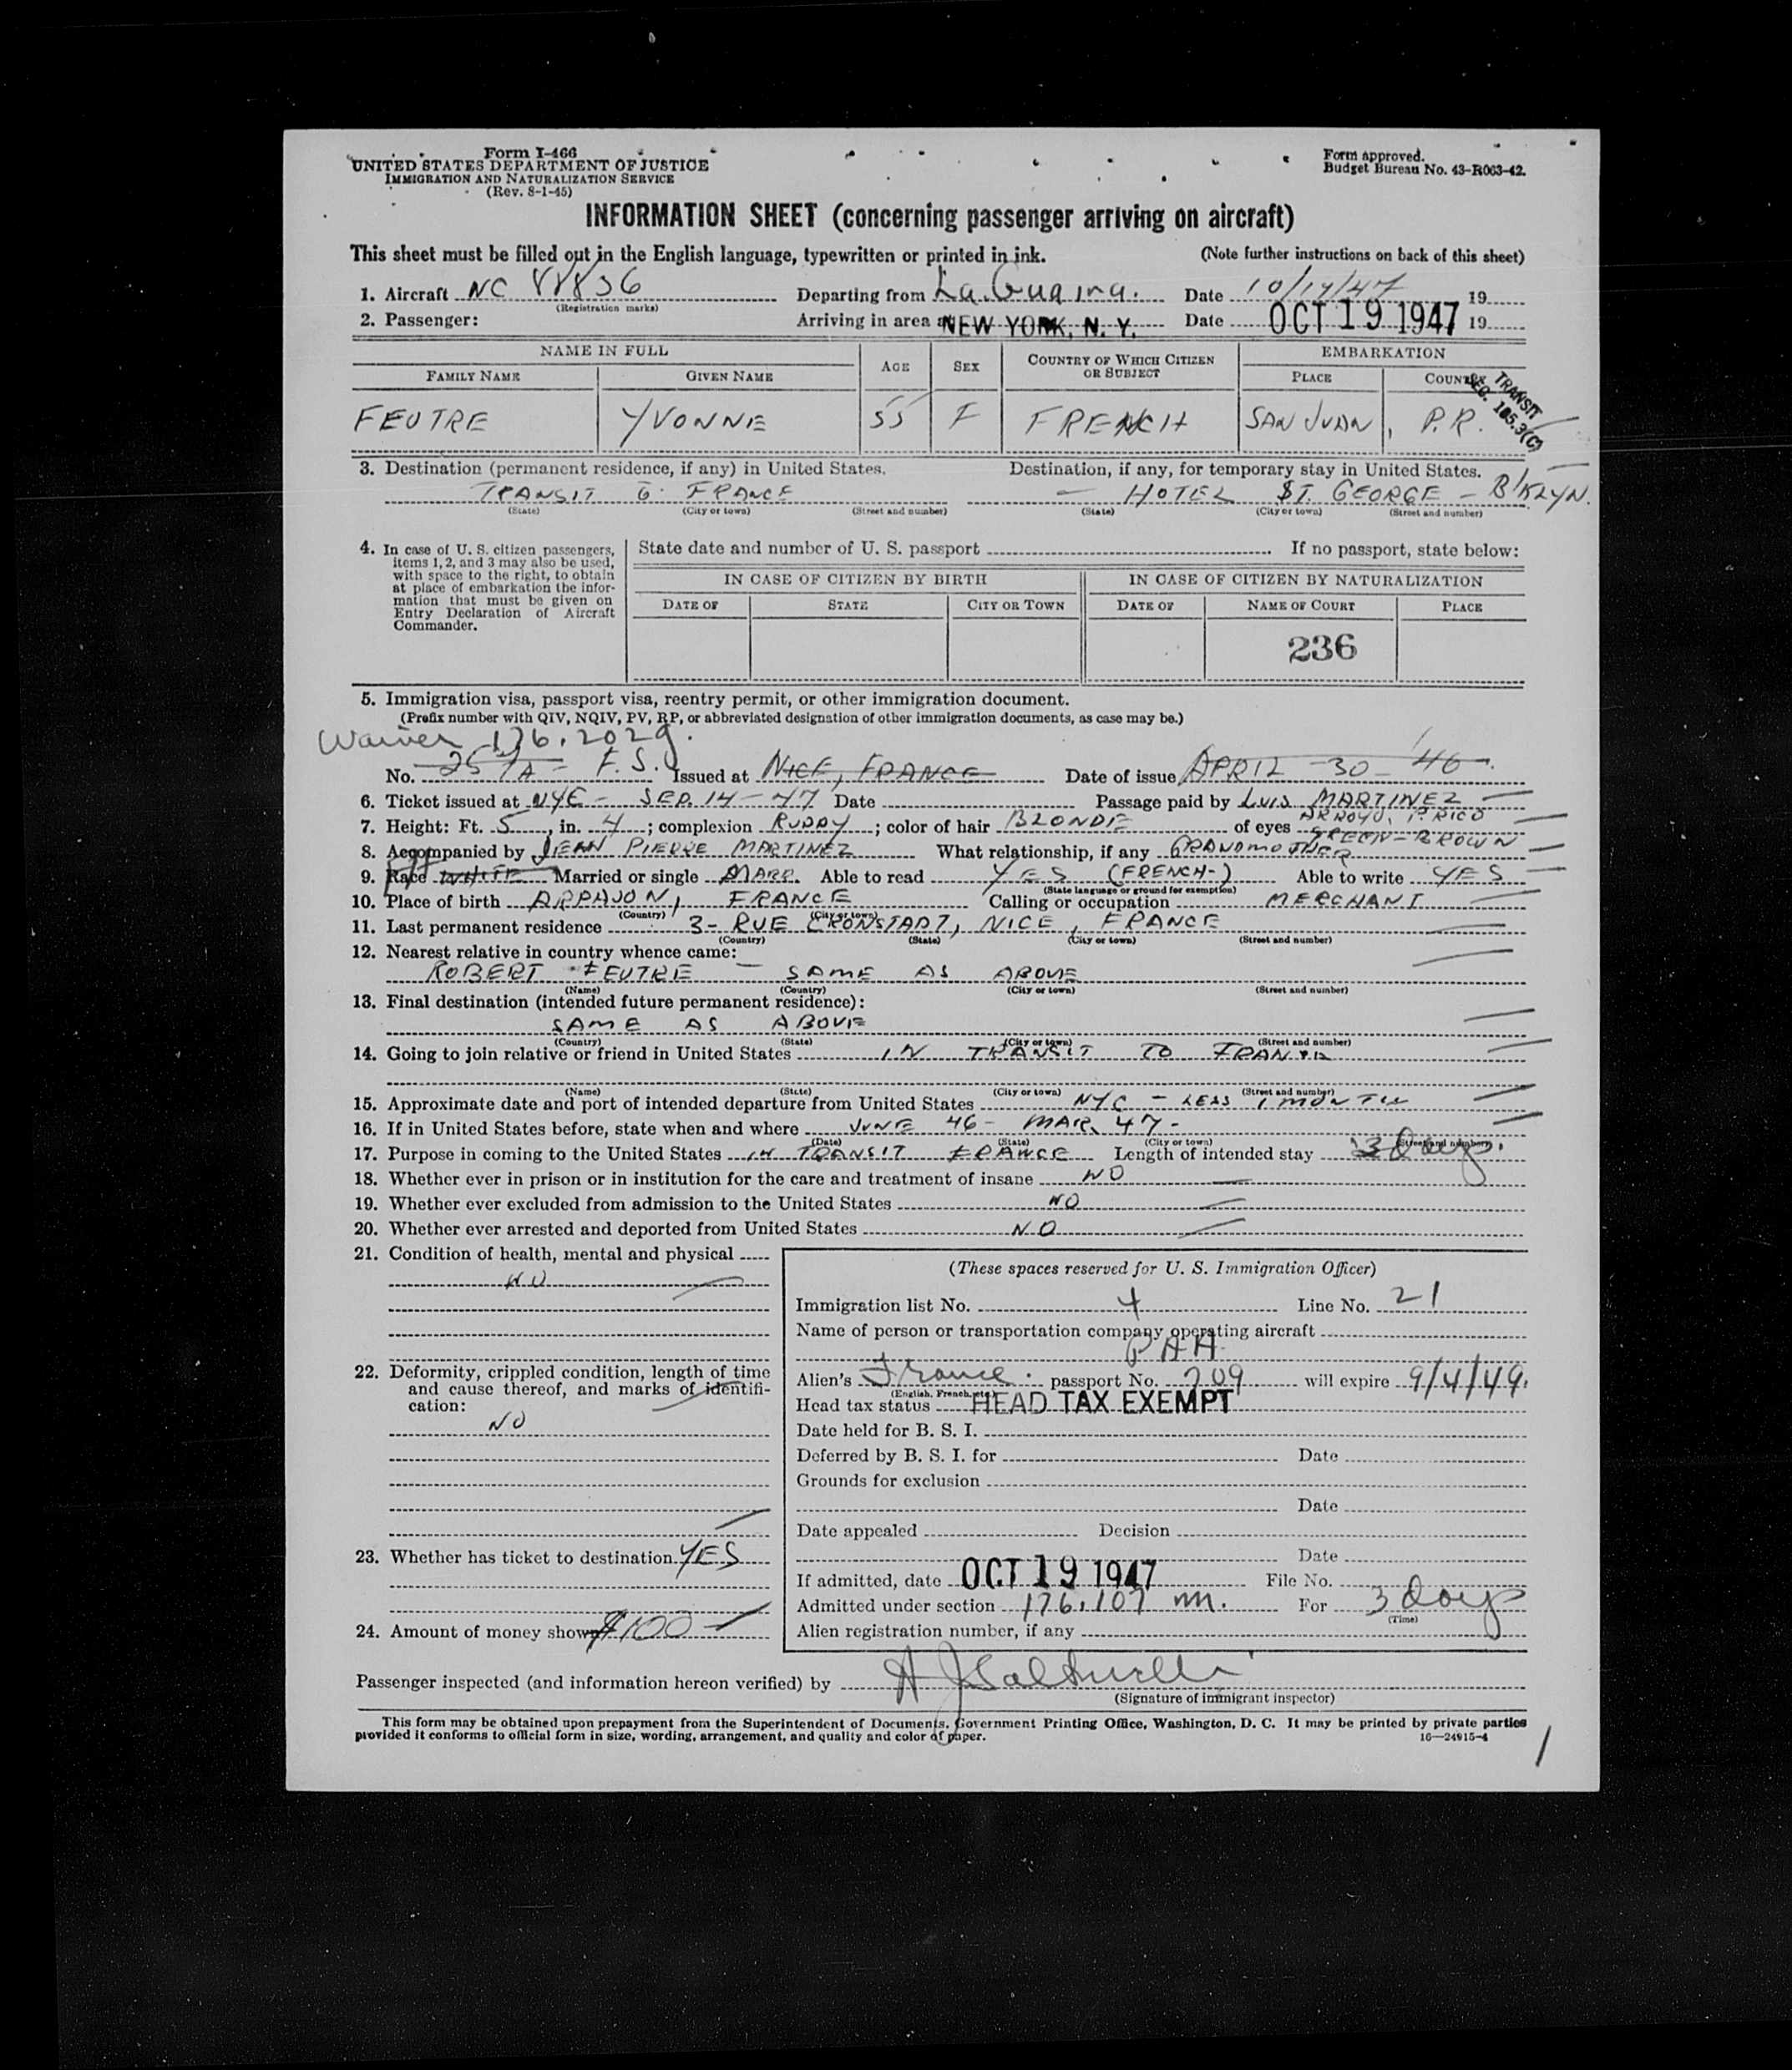 Form I-466
UNITED STATES DEPARTMENT OF JUSTICE
IMMIGRATION AND NATURALIZATION SERVICE
(Rev. 8-1-45)
Form approved.
Budget Bureau No. 43-R063-42.
INFORMATION SHEET (concerning passenger arriving on aircraft)
This sheet must be filled out in the English language, typewritten or printed in ink. (Note further instructions on back of this sheet)
1. Aircraft NC 88836 Departing from La Guaira. Date 10/19/47 19
(Registration marks)
2. Passenger: Arriving in area NEW YORK, N. Y. Date OCT 19 1947 19
NAME IN FULL AGE SEX COUNTRY OF WHICH CITIZEN OR SUBJECT EMBARKATION
FAMILY NAME GIVEN NAME PLACE COUNTRY
TRANSIT
SEC. 165.3(C)
FEUTRE YVONNE 55 F FRENCH SAN JUAN, P.R.
3. Destination (permanent residence, if any) in United States. Destination, if any, for temporary stay in United States.
TRANSIT to FRANCE — HOTEL ST. GEORGE - B'KLYN.
(State) (City or town) (Street and number) (State) (City or town) (Street and number)
4. In case of U. S. citizen passengers, items 1, 2, and 3 may also be used, with space to the right, to obtain at place of embarkation the information that must be given on Entry Declaration of Aircraft Commander.
State date and number of U. S. passport If no passport, state below:
IN CASE OF CITIZEN BY BIRTH IN CASE OF CITIZEN BY NATURALIZATION
DATE OF STATE CITY OR TOWN DATE OF NAME OF COURT PLACE
236
5. Immigration visa, passport visa, reentry permit, or other immigration document.
(Prefix number with QIV, NQIV, PV, RP, or abbreviated designation of other immigration documents, as case may be.)
Waiver 176.202g.
No. F.S. Issued at NICE, FRANCE Date of issue APRIL 30 - 46
6. Ticket issued at NYC - SEP. 14 - 47 Date Passage paid by LUIS MARTINEZ
ARROYO, P. RICO
7. Height: Ft. 5, in. 4; complexion RUDDY; color of hair BLONDE of eyes GREEN-BROWN
8. Accompanied by JEAN PIERRE MARTINEZ What relationship, if any GRANDMOTHER
9. Race WHITE Married or single MARR. Able to read YES (FRENCH-) Able to write YES
(State language or ground for exemption)
10. Place of birth ARPAJON, FRANCE Calling or occupation MERCHANT
(Country) (City or town)
11. Last permanent residence 3- RUE CRONSTADT, NICE, FRANCE
(Country) (State) (City or town) (Street and number)
12. Nearest relative in country whence came:
ROBERT FEUTRE - SAME AS ABOVE
(Name) (Country) (City or town) (Street and number)
13. Final destination (intended future permanent residence):
SAME AS ABOVE
(Country) (State) (City or town) (Street and number)
14. Going to join relative or friend in United States IN TRANSIT TO FRANCE
(Name) (State) (City or town) (Street and number)
15. Approximate date and port of intended departure from United States NYC - LESS 1 MONTH
16. If in United States before, state when and where JUNE 46 - MAR. 47 -
(Date) (State) (City or town) (Street and number)
17. Purpose in coming to the United States IN TRANSIT FRANCE Length of intended stay 3 days.
18. Whether ever in prison or in institution for the care and treatment of insane NO
19. Whether ever excluded from admission to the United States NO
20. Whether ever arrested and deported from United States NO
21. Condition of health, mental and physical
NO
22. Deformity, crippled condition, length of time and cause thereof, and marks of identification:
NO
23. Whether has ticket to destination YES
24. Amount of money shown $100
(These spaces reserved for U. S. Immigration Officer)
Immigration list No. 4 Line No. 21
Name of person or transportation company operating aircraft
PAA
Alien's France. passport No. 209 will expire 9/4/49.
(English, French, etc.)
Head tax status HEAD TAX EXEMPT
Date held for B. S. I.
Deferred by B. S. I. for Date
Grounds for exclusion
Date
Date appealed Decision
Date
If admitted, date OCT 19 1947 File No.
Admitted under section 176.107 For 3 days
(Time)
Alien registration number, if any
Passenger inspected (and information hereon verified) by
(Signature of immigrant inspector)
This form may be obtained upon prepayment from the Superintendent of Documents, Government Printing Office, Washington, D. C. It may be printed by private parties
provided it conforms to official form in size, wording, arrangement, and quality and color of paper. 16—24915-4